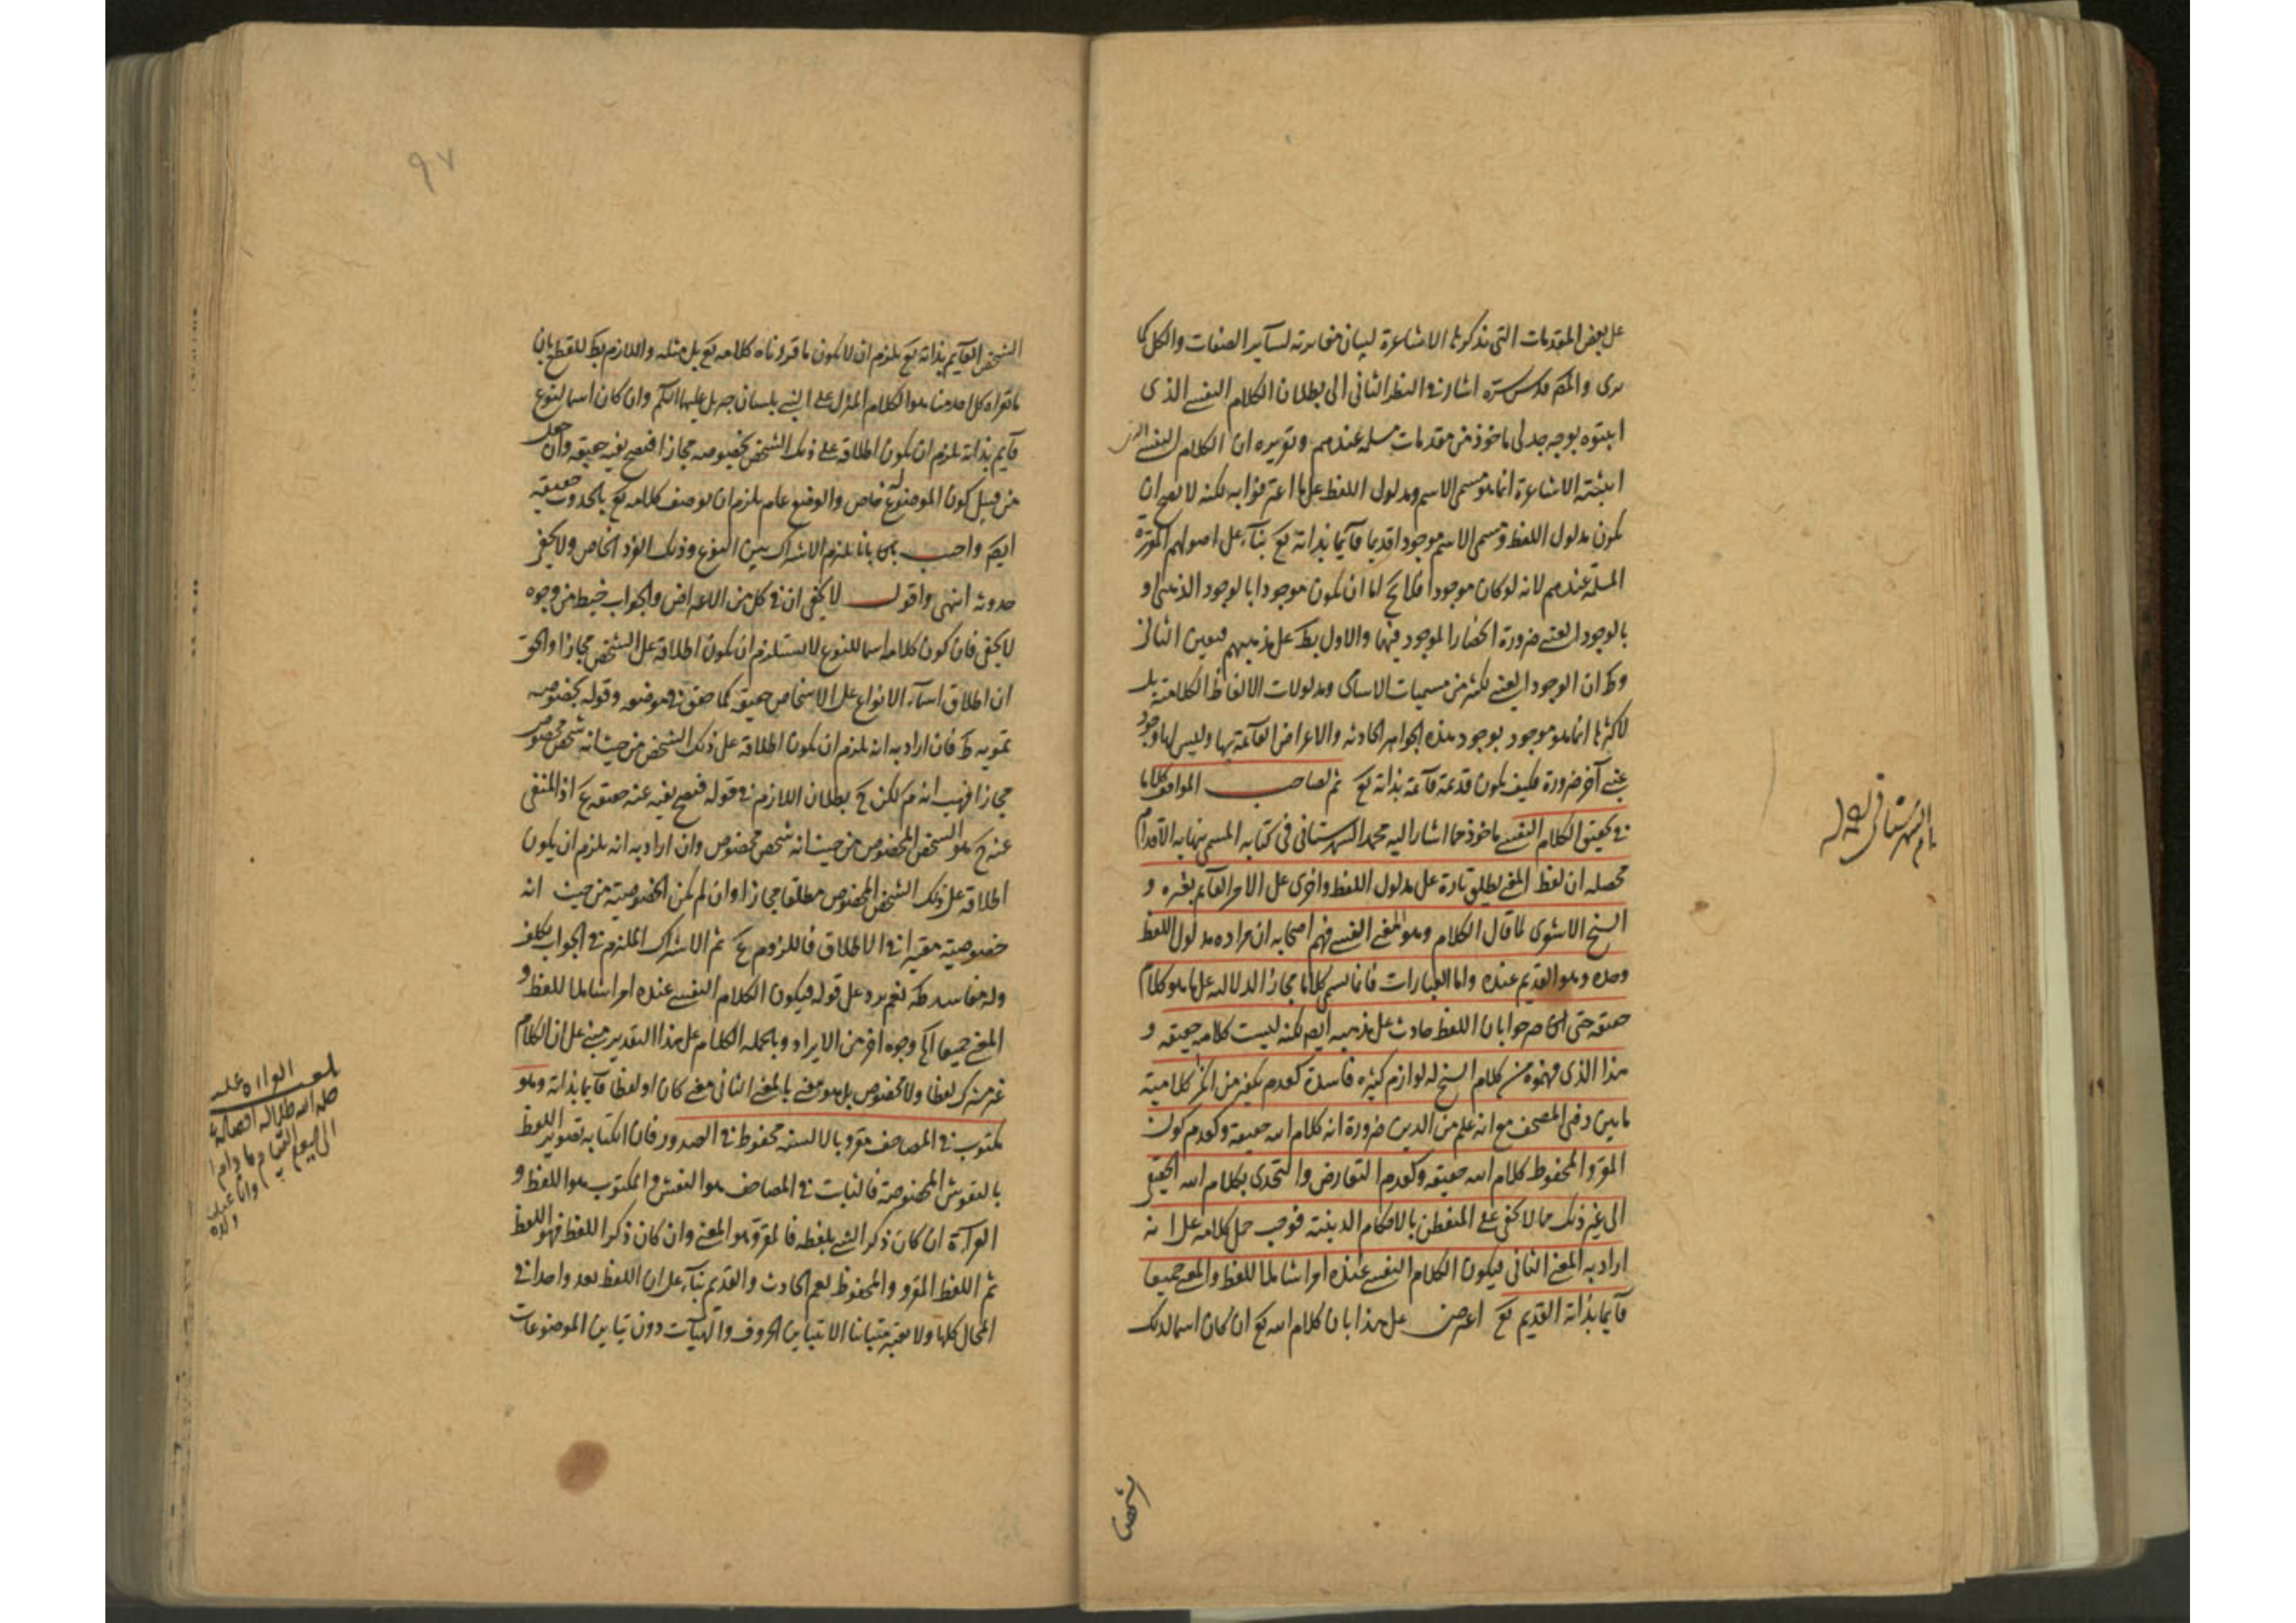 على بعض المقدمات التى يذكرها الاشاعرة لبيان مغايرته لساير الصفات والكل كما
يرى والمص قدس سره اشار فى النظر الثانى الى بطلان الكلام النفسى الذى
اثبتوه بوجه جدلى ماخوذ من مقدمات مسلمة عندهم وتقريره ان الكلام النفسى الذى
اثبتته الاشاعرة انما هو مسمى الاسم ومدلول اللفظ على ما اعترفوا به لكنه لا يصح ان
يكون مدلول اللفظ ومسمى الاسم موجودا قديما قايما بذاته تع بناء على اصولهم المقررة
المسلمة عندهم لانه لو كان موجودا فلا يخ اما ان يكون موجودا بالوجود الذهنى او
بالوجود العينى ضرورة انحصار الموجود فيهما والاول بط على مذهبهم فتعين الثانى
وظ ان الوجود العينى لكثير من مسميات الاسامى ومدلولات الالفاظ الكلامية بل
لاكثرها انما هو موجود بوجود هذه الجواهر الحادثة والاعراض القائمة بها وليس لها وجود
عينى آخر ضرورة فكيف يكون قديمة قائمة بذاته تع ثم لصاحب المواقف كلاما
فى تحقيق الكلام النفسى ماخوذ مما اشار اليه محمد الشهرستانى فى كتابه المسمى بنهاية الاقدام
محصله ان لفظ المعنى يطلق تارة على مدلول اللفظ واخرى على الامر القائم بغيره و
الشيخ الاشعرى لما قال الكلام هو المعنى النفسى فهم اصحابه ان مراده مدلول اللفظ
وحده وهو القديم عنده واما العبارات فانما يسمى كلاما مجازا لدلالته على ما هو كلام
حقيقة حتى صرحوا بان اللفظ حادث على مذهبه ايضا لكنه ليست كلامه حقيقة و
هذا الذى فهموه من كلام الشيخ له لوازم كثيرة فاسدة كعدم تكفير من انكر كلامية
ما بين دفتى المصحف مع انه علم من الدين ضرورة انه كلام الله حقيقة وكعدم كون
المقرو والمحفوظ كلام الله حقيقة وكعدم التعارض والتحدى بكلام الله الحقيقى
الى غير ذلك مما لا يخفى على المتفطن بالاحكام الدينية فوجب حمل كلامه على انه
اراد به المعنى الثانى فيكون الكلام النفسى عنده امرا شاملا للفظ والمعنى جميعا
قايما بذاته القديم تع اعترض على هذا بان كلام الله تع ان كان اسما لذلك
الشخص القايم بذاته تع يلزم ان لا يكون ما قراناه كلامه تع بل مثله واللازم بط للقطع بان
ما قراه كل احد منا هو الكلام المنزل على النبى بلسان جبريل عليهما السلم وان كان اسما لنوع
قايم بذاته يلزم ان يكون اطلاقه على ذلك الشخص بخصوصه مجازا فيصح نفيه حقيقة وان جعل
من قبيل كون الموضوع له خاص والوضع عام يلزم ان يوصف كلامه تع بالحدوث حقيقة
ايضا واجيب بانا نلتزم الاشتراك بين النوع وذلك الفرد الخاص ولا يخفى
حدوثه انتهى واقول لا يخفى ان فى كل من الاعتراض والجواب خبط من وجوه
لا يخفى فان كون كلامه اسما للنوع لا يستلزم ان يكون اطلاقه على الشخص مجازا والحق
ان اطلاق اسماء الانواع على الاشخاص حقيقة كما حقق فى موضعه وقوله بخصوصه
تمويه ظ فان اراد به انه يلزم ان يكون اطلاقه على ذلك الشخص من حيث انه شخص مخصوص
مجازا فهب انه م لكن ح بطلان اللازم فى قوله فيصح نفيه عنه حقيقة م اذ المنفى
عنه ح هو الشخص المخصوص من حيث انه شخص مخصوص وان اراد به انه يلزم ان يكون
اطلاقه على ذلك الشخص المخصوص مطلقا مجازا وان لم يكن الخصوصية من حيث انه
خصوصية معتبرا فى الاطلاق فاللزوم م ثم الاشتراك الملتزم فى الجواب تكلف
وله مفاسد ظ نعم يرد على قوله فيكون الكلام النفسى عنده امرا شاملا للفظ و
المعنى جميعا آه وجوه اخر من الايراد وبالجملة الكلام على هذا التقدير مبنى على ان الكلام
غير مشترك لفظا ولا مخصوص بل هو معنى بالمعنى الثانى معنى كان او لفظا قايما بذاته وهو
مكتوب فى المصاحف مقرو بالالسنة محفوظ فى الصدور فان الكتابة تصوير اللفظ
بالنقوش المخصوصة فالثابت فى المصاحف هو النقش والمكتوب هو اللفظ و
القراءة ان كان ذكر الشى بلفظه فالمقرو هو المعنى وان كان ذكر اللفظ فهو اللفظ
ثم اللفظ المقرو والمحفوظ يعم الحادث والقديم بناء على ان اللفظ يعد واحدا فى
المحال كلها ولا يعتبر متباينا الا بتباين الحروف والهيآت دون تباين الموضوعات
٩٧